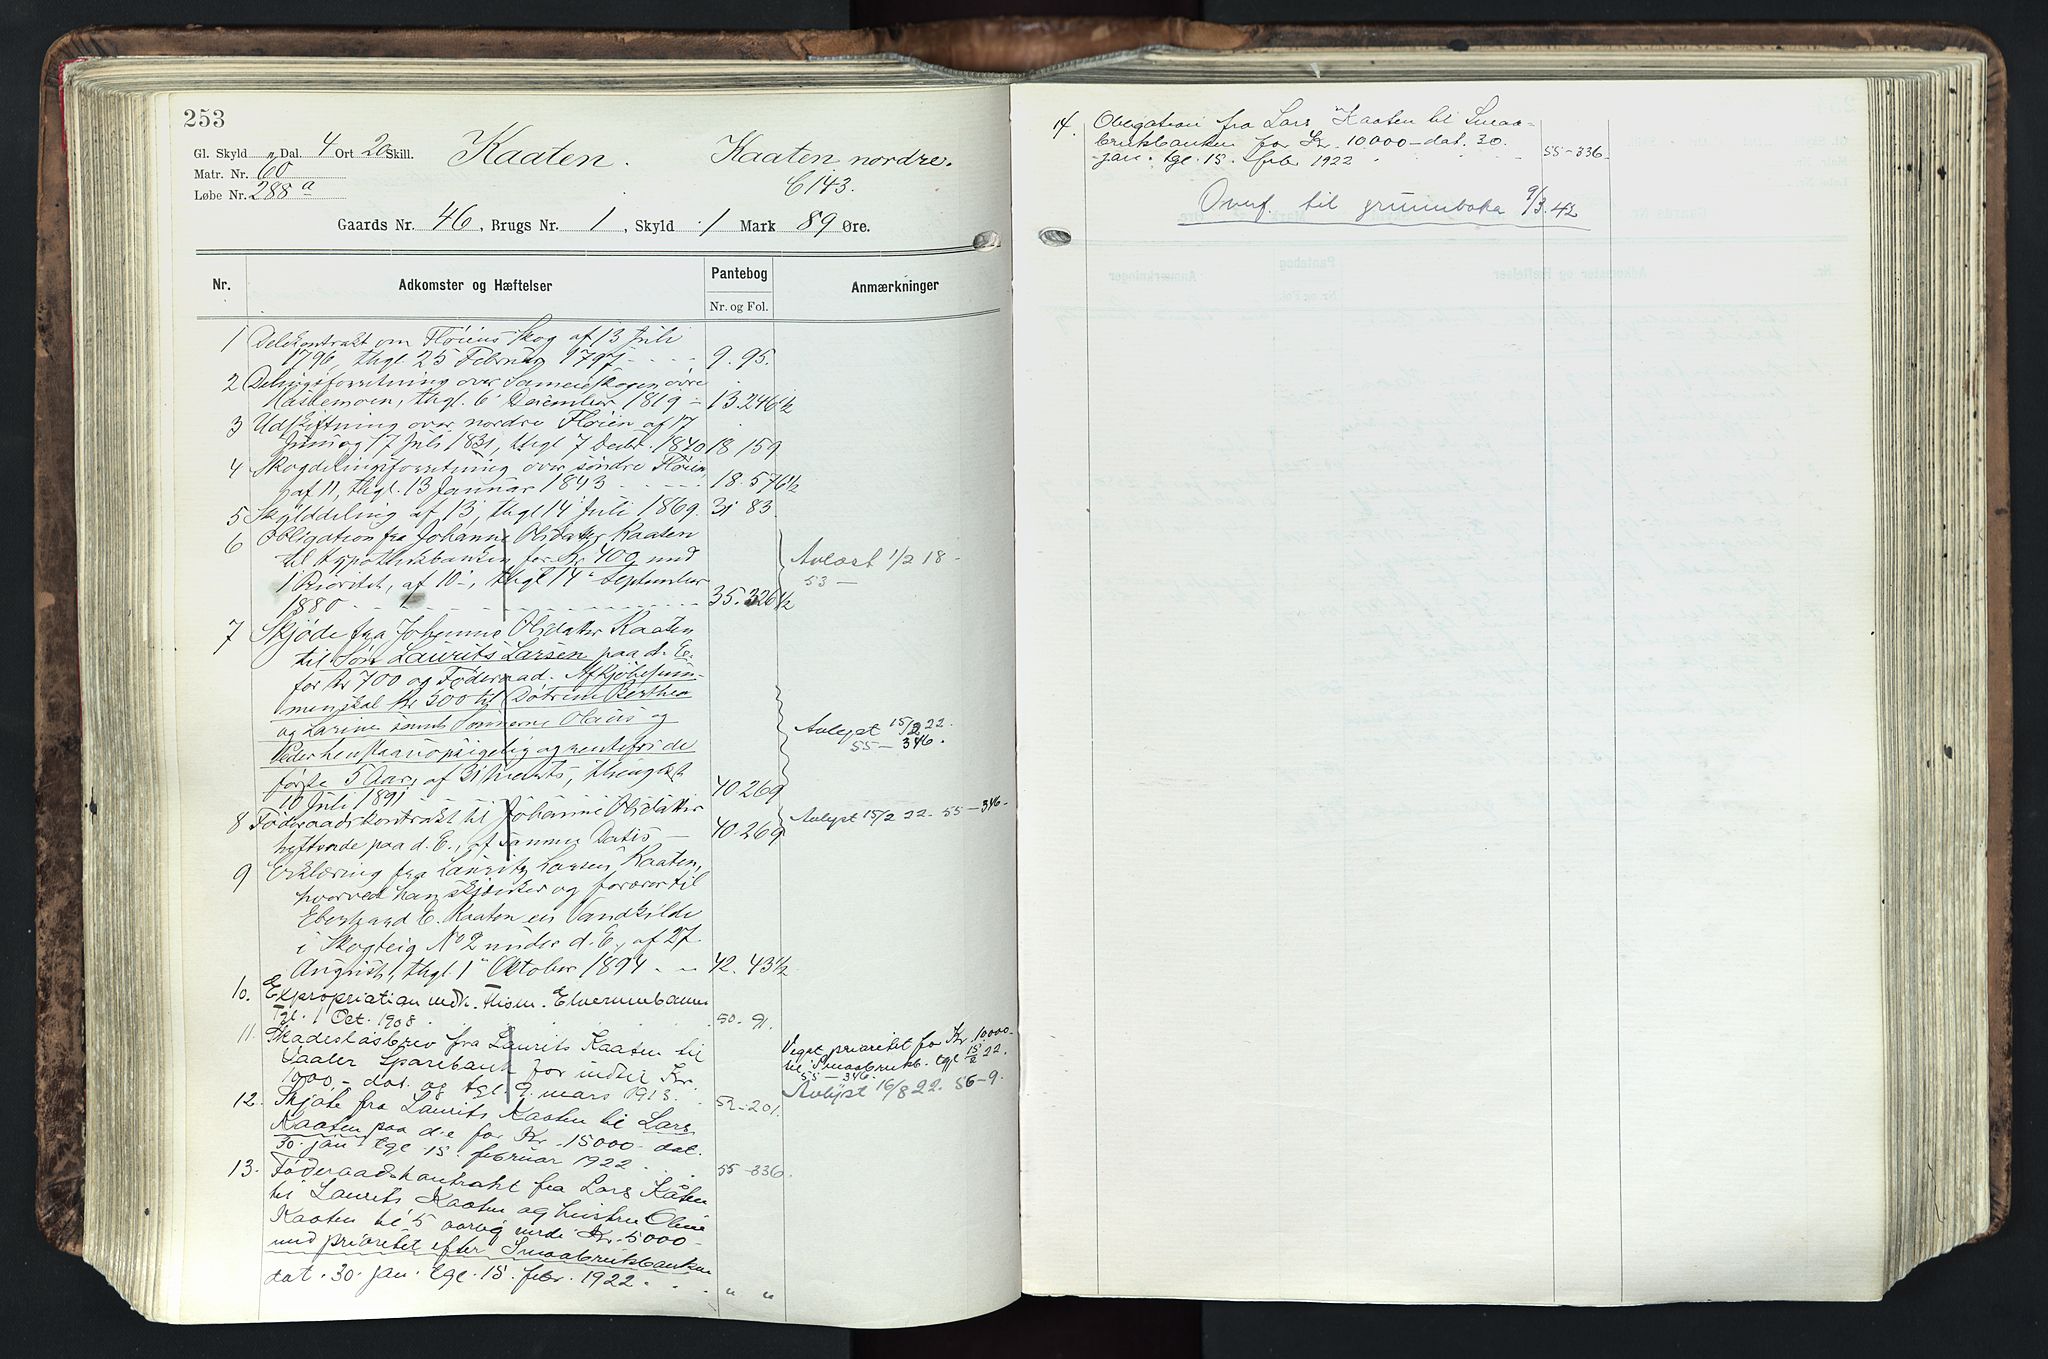 253
Gl. Skyld " Dal. 4 Ort 20 Skill. Kaaten. Kaaten nordre.
Matr. Nr. 60
Løbe Nr. 288 a C 143.
Gaards Nr. 46, Brugs Nr. 1, Skyld 1 Mark 89 Øre.
Nr. Adkomster og Hæftelser Pantebog Anmærkninger
Nr. og Fol.
1 Delekontrakt om Fløiens Skog af 13 Juli
1796, thgl. 25 Februar 1797 - - - - 9. 95.
2 Delingsforretning over Sameieskogen øvre
Haslemoen, thgl. 6' December 1819 - 13. 246 1/2
3 Udskiftning over nordre Fløien af 17
Juni og 17 Juli 1831, thgl 7 Decbr. 1840 18 159
4 Skogdelingsforretning over søndre Fløien
af 11, thgl. 13 Januar 1843 - - - - 18. 576 1/2
5 Skylddeling af 13, thgl 14' Juli 1869. 31 83
6 Obligation fra Johanne Olsdatter Kaaten
til Hypothekbanken for Kr 400 med
1 Prioritet, af 10', thgl 14' September
1880 - - - - 35. 326 1/2
Avlæst 1/2 18 -
53 -
7 Skjøde fra Johanne Olsdatter Kaaten
til Søn Laurits Larsen paa d. E.
for Kr 700 og Føderaad. Af Kjøbesum-
men skal Kr 500 til Døtrene Berthea
og Larine samt Sønnerne Olaus og
Peder henstaa uopsigelig og rentefri de
første 5 Aar, af 31 Marts, thinglæst
10 Juli 1891 40. 269
Avlyst 15/2 22.
55 - 346.
8 Føderaadskontrakt til Johanne Olsdatter
heftende paa d. E., af samme Datis - 40. 269 Avlyst 15/2 22. 55 - 346.
9 Erklæring fra Laurits Larsen Kaaten,
hvorved han skjænker og forærer til
Eberhard E. Kaaten en Vandkilde
i Skogteig No 2 under d. E., af 27
August, thgl. 1' Oktober 1894 - - 42. 43 1/2
10. Expropriation vedk. Flisen. Elverumbanen
Tgl. 1 Oct. 1908. 50 - 91.
11. Skadesløsbrev fra Laurits Kaaten til
Vaaler Sparebank for indtil Kr.
1000,- dat. og tgl 9. mars 1913. 52 - 201.
Veget prioritet for Kr. 10000-
til Smaabrukb. tgl 15/2 22.
55 - 346.
Avlyst 16/8 22. 56 - 9.
12. Skjøte fra Laurits Kaaten til Lars
Kaaten paa d.e for Kr. 15000- dat.
30. jan tgl 15. februar 1922 . . 55 - 336.
13. Føderaadskontrakt fra Lars Kåten
til Laurits Kaaten og hustru Oline
Kaaten til 5 aarlig verdi Kr. 5000-
med prioritet efter Smaabrukbanken
dat. 30. jan. tgl. 15. febr. 1922 . . . " "
14. Obligation fra Lars Kaaten til Smaa-
brukbanken for Kr. 10000- dat. 30.
jan. tgl. 15. feb 1922 . . . 55 - 336 -
Overf. til grunnboka 9/3.42